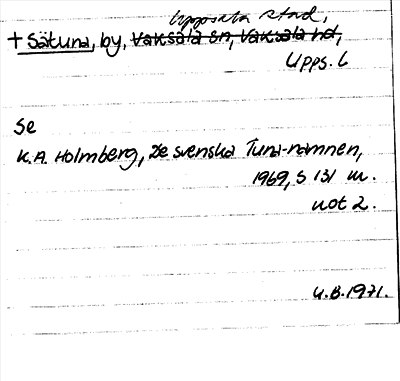 Uppsala stad,
+ Sätuna, by, Vaksala sn, Vaksala hd,
Upps. l
Se
K.A. Holmberg, De svenska Tuna-namnen,
1969, s 131 m.
not 2.
U.B. 1971.